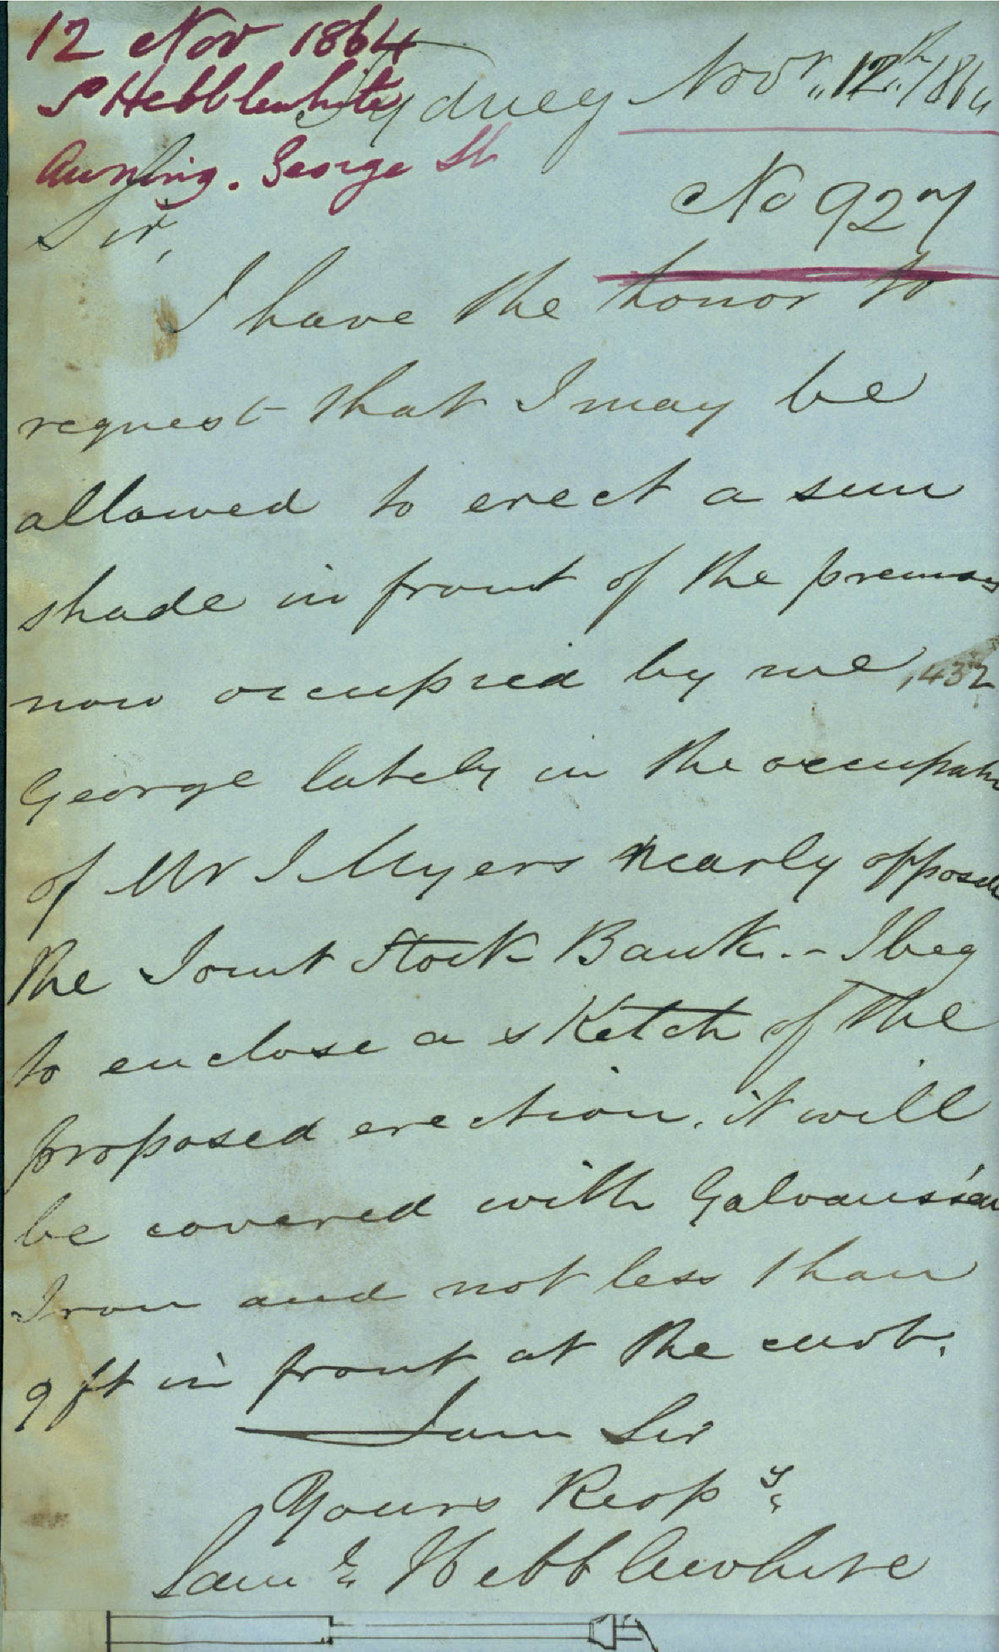 12 Nov 1864
S Hebblewhite
Awning. George St
Sydney Novr. 12th. 1864
No 927
Sir,
I have the honor to
request that I may be
allowed to erect a sun
shade in front of the premises
now occupied by me, 432
George lately in the occupatn
of Mr I Myers nearly opposite
the Joint Stock Bank. - I beg
to enclose a sketch of the
proposed erection, it will
be covered with Galvanised
Iron and not less than
9 ft in front at the curb.
I am Sir
Yours Respy
Saml Hebblewhite